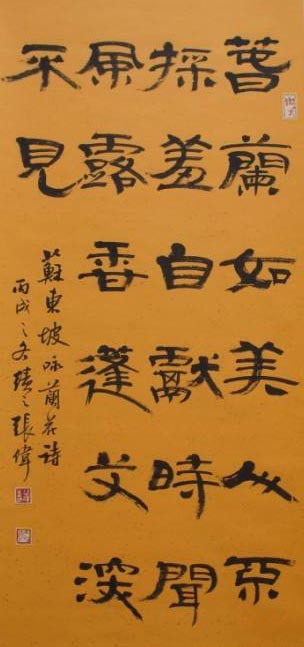 春蘭如美人不
採羞自獻時聞
風露香蓬艾深
不見
蘇東坡咏蘭花詩
丙戌之冬績之張偉